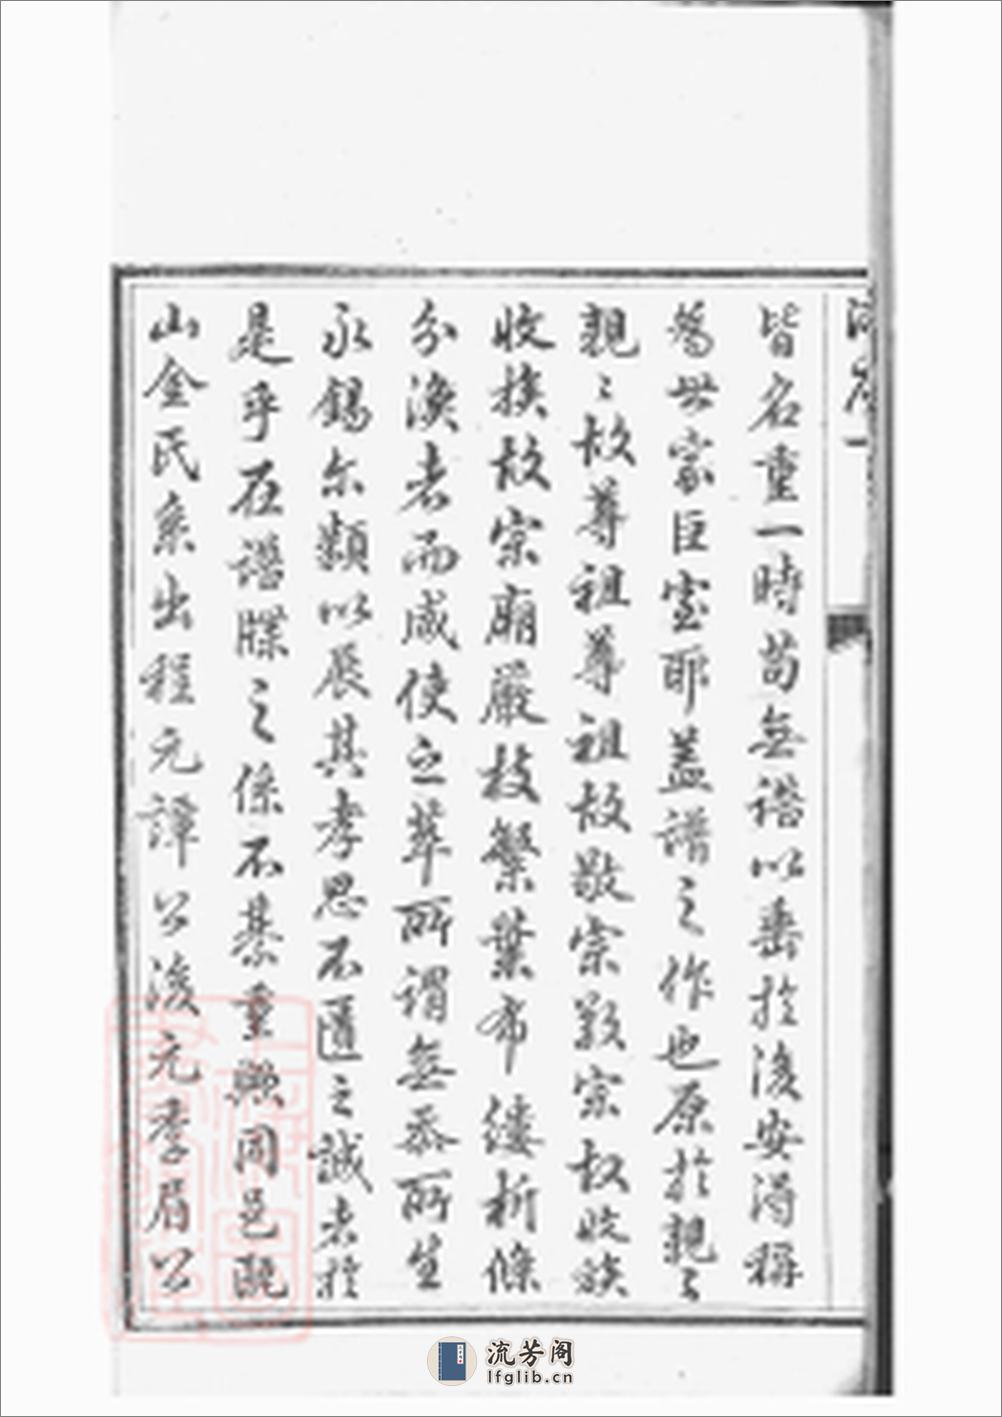 皆名重一時茍無譜以垂於後安得稱
為世家巨室耶蓋譜之作也原於親〻
親〻故尊祖尊祖故敬宗敬宗故收族
收族故宗廟嚴枝繁葉布縷析條
分渙者而咸使之萃所謂無忝所生
永錫尒類以展其孝思不匱之誠者於
是乎在譜牒之係不綦重歟同邑甌
山金氏系出程元譚公後元季眉公
流芳阁
lfglib.cn